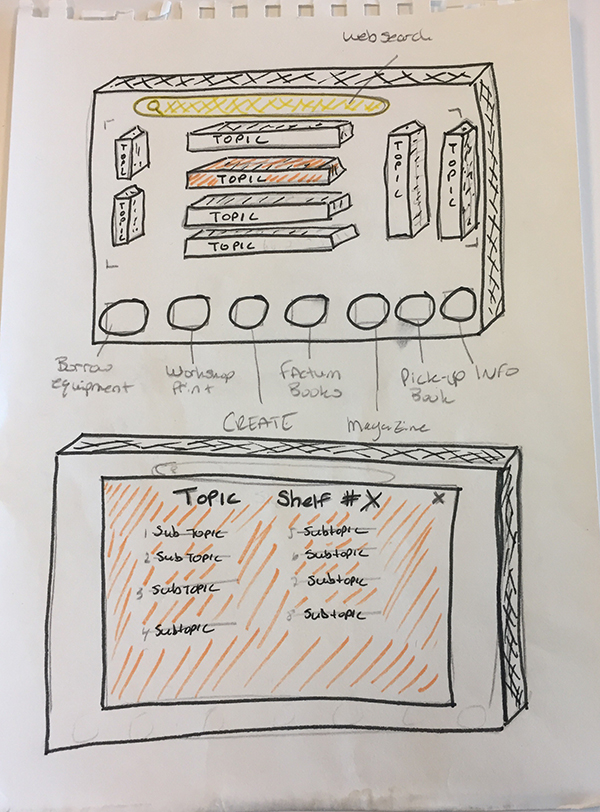 Web search
TOPIC
TOPIC
TOPIC
TOPIC
TOPIC
TOPIC
TOPIC
TOPIC
Borrow
Equipment
Workshop
Print
CREATE
Factum
Books
Magazine
Pick-up
Book
INFO
TOPIC Shelf #X X
1 Sub Topic
2 Sub Topic
3 SubTopic
4 Subtopic
5 Subtopic
6 Subtopic
7 Subtopic
8 Subtopic